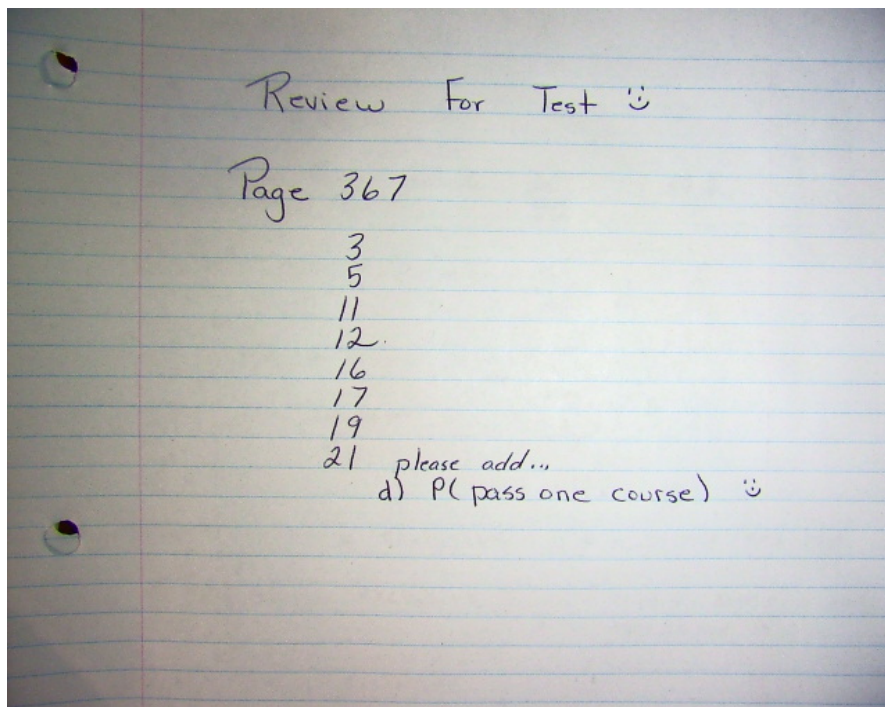 Review For Test :)
Page 367
3
5
11
12.
16
17
19
21 please add...
d) P( pass one course) :)